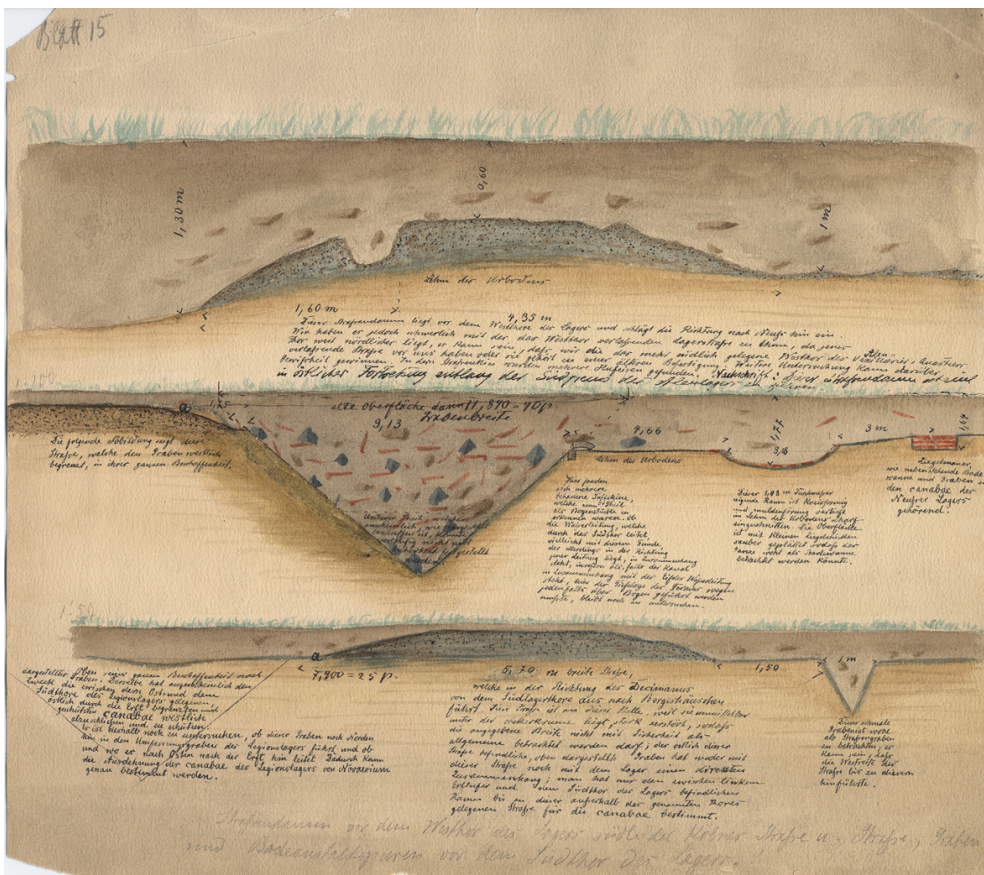 Blatt 15
1,30 m
0,60
1 m
Lehm des Urbodens
1,60 m
4,35 m
Dieser Straßendamm liegt vor dem Westthore des Lagers und schlägt die Richtung nach Neuß hin ein
Wir haben es jedoch schwerlich mit der das Westthor verlassenden Lagerstraße zu thun, da jenes
Thor weit nördlicher liegt, es kann sein, daß wir die das mehr südlich gelegene Westthor des
verlassende Straße vor uns haben oder sie gehört zu einer älteren Befestigung. Weitere Untersuchung kann darüber
Gewißheit gewinnen. In dem Straßenkies wurden mehrere Hufeisen gefunden. Nachschrift: dieser Straßendamm ist
in östlicher Fortsetzung entlang der Südgrenze des Alenlagers
a
alte Oberfläche dann 11,840 = 40 p.
9,13
Grabenbreite
4,66
3 m
Lehm des Urbodens
Die folgende Abbildung zeigt die
Straße, welche den Graben westlich
begrenzt, in ihrer ganzen Beschaffenheit.
Unterer Theil, welcher
Hier fanden
sich mehrere
behauene Tuffsteine,
welche zum Theil
als Bogenstücke zu
erkennen waren. Ob
die Wasserleitung, welche
durch das Südthor leitet,
vielleicht mit diesem Funde,
der allerdings in der Richtung
jener Leitung liegt, in Zusammenhang
steht, insofern als falls der Kanal
in Zusammenhang mit der Eifeler Wasserleitung
steht, hier der Tieflage des Terrains wegen
jedenfalls über Bogen geführt worden
mußte, bleibt noch zu untersuchen.
Dieser 3,98 m Durchmesser
zeigende Raum ist kreisförmig
und muldenförmig vertieft
in Lehm des Urbodens scharf
eingeschnitten. Die Oberfläche
ist mit kleinen Ziegelstücken
sauber geplättet sodaß das
Ganze wohl als Badewanne
betrachtet werden könnte.
Ziegelmauer,
wie nebenstehende Bade
wanne und Graben zu
den canabae des
Neußer Lagers
gehörend.
1:50
a
7,400 = 25 p.
5,70 m breite Straße,
1,50
1 m
dargestellter oben seiner ganzen Beschaffenheit nach
Graben. Derselbe hat augenscheinlich den
Zweck die zwischen dem Ost und dem
Südthore des Legionslagers gelegenen
östlich durch die Erft begrenzten mit
canabae westlich
abzuschließen und zu schützen.
Es ist deshalb noch zu untersuchen, ob dieser Graben nach Norden
hin in den Umfassungsgraben des Legionslagers führt und ob
und wo er nach Osten nach der Erft hin leitet. Dadurch kann
die Ausdehnung der canabae des Legionslagers von Novaesium
genau bestimmt werden.
welche in der Richtung des Decimanus
von dem Südlagerthore aus nach Bergeshäuschen
führt. Diese Straße ist an dieser Stelle, weil sie unmittelbar
unter der Ackerkrume liegt, stark zerstört, sodaß
die angegebene Breite nicht mit Sicherheit als
allgemeine betrachtet werden darf; der östlich dieser
Straße befindliche, oben dargestellte Graben hat weder mit
dieser Straße noch mit dem Lager einen directen
Zusammenhang; man hat nur den zwischen linkem
Erftufer und dem Südthor des Lagers befindlichen
Raum bis zu dieser außerhalb des genannten Thores
gelegenen Straße für die canabae bestimmt.
Dieser schmale
Graben ist wohl
als Straßengraben
zu betrachten, es
kann sein, daß
die Westseite der
Straße bis zu diesem
hinführte.
Straßendamm vor dem Westthor des Lagers südlich der Kölner Straße u. Straße, Gräben
und Badeanstaltspuren vor dem Südthor des Lagers.